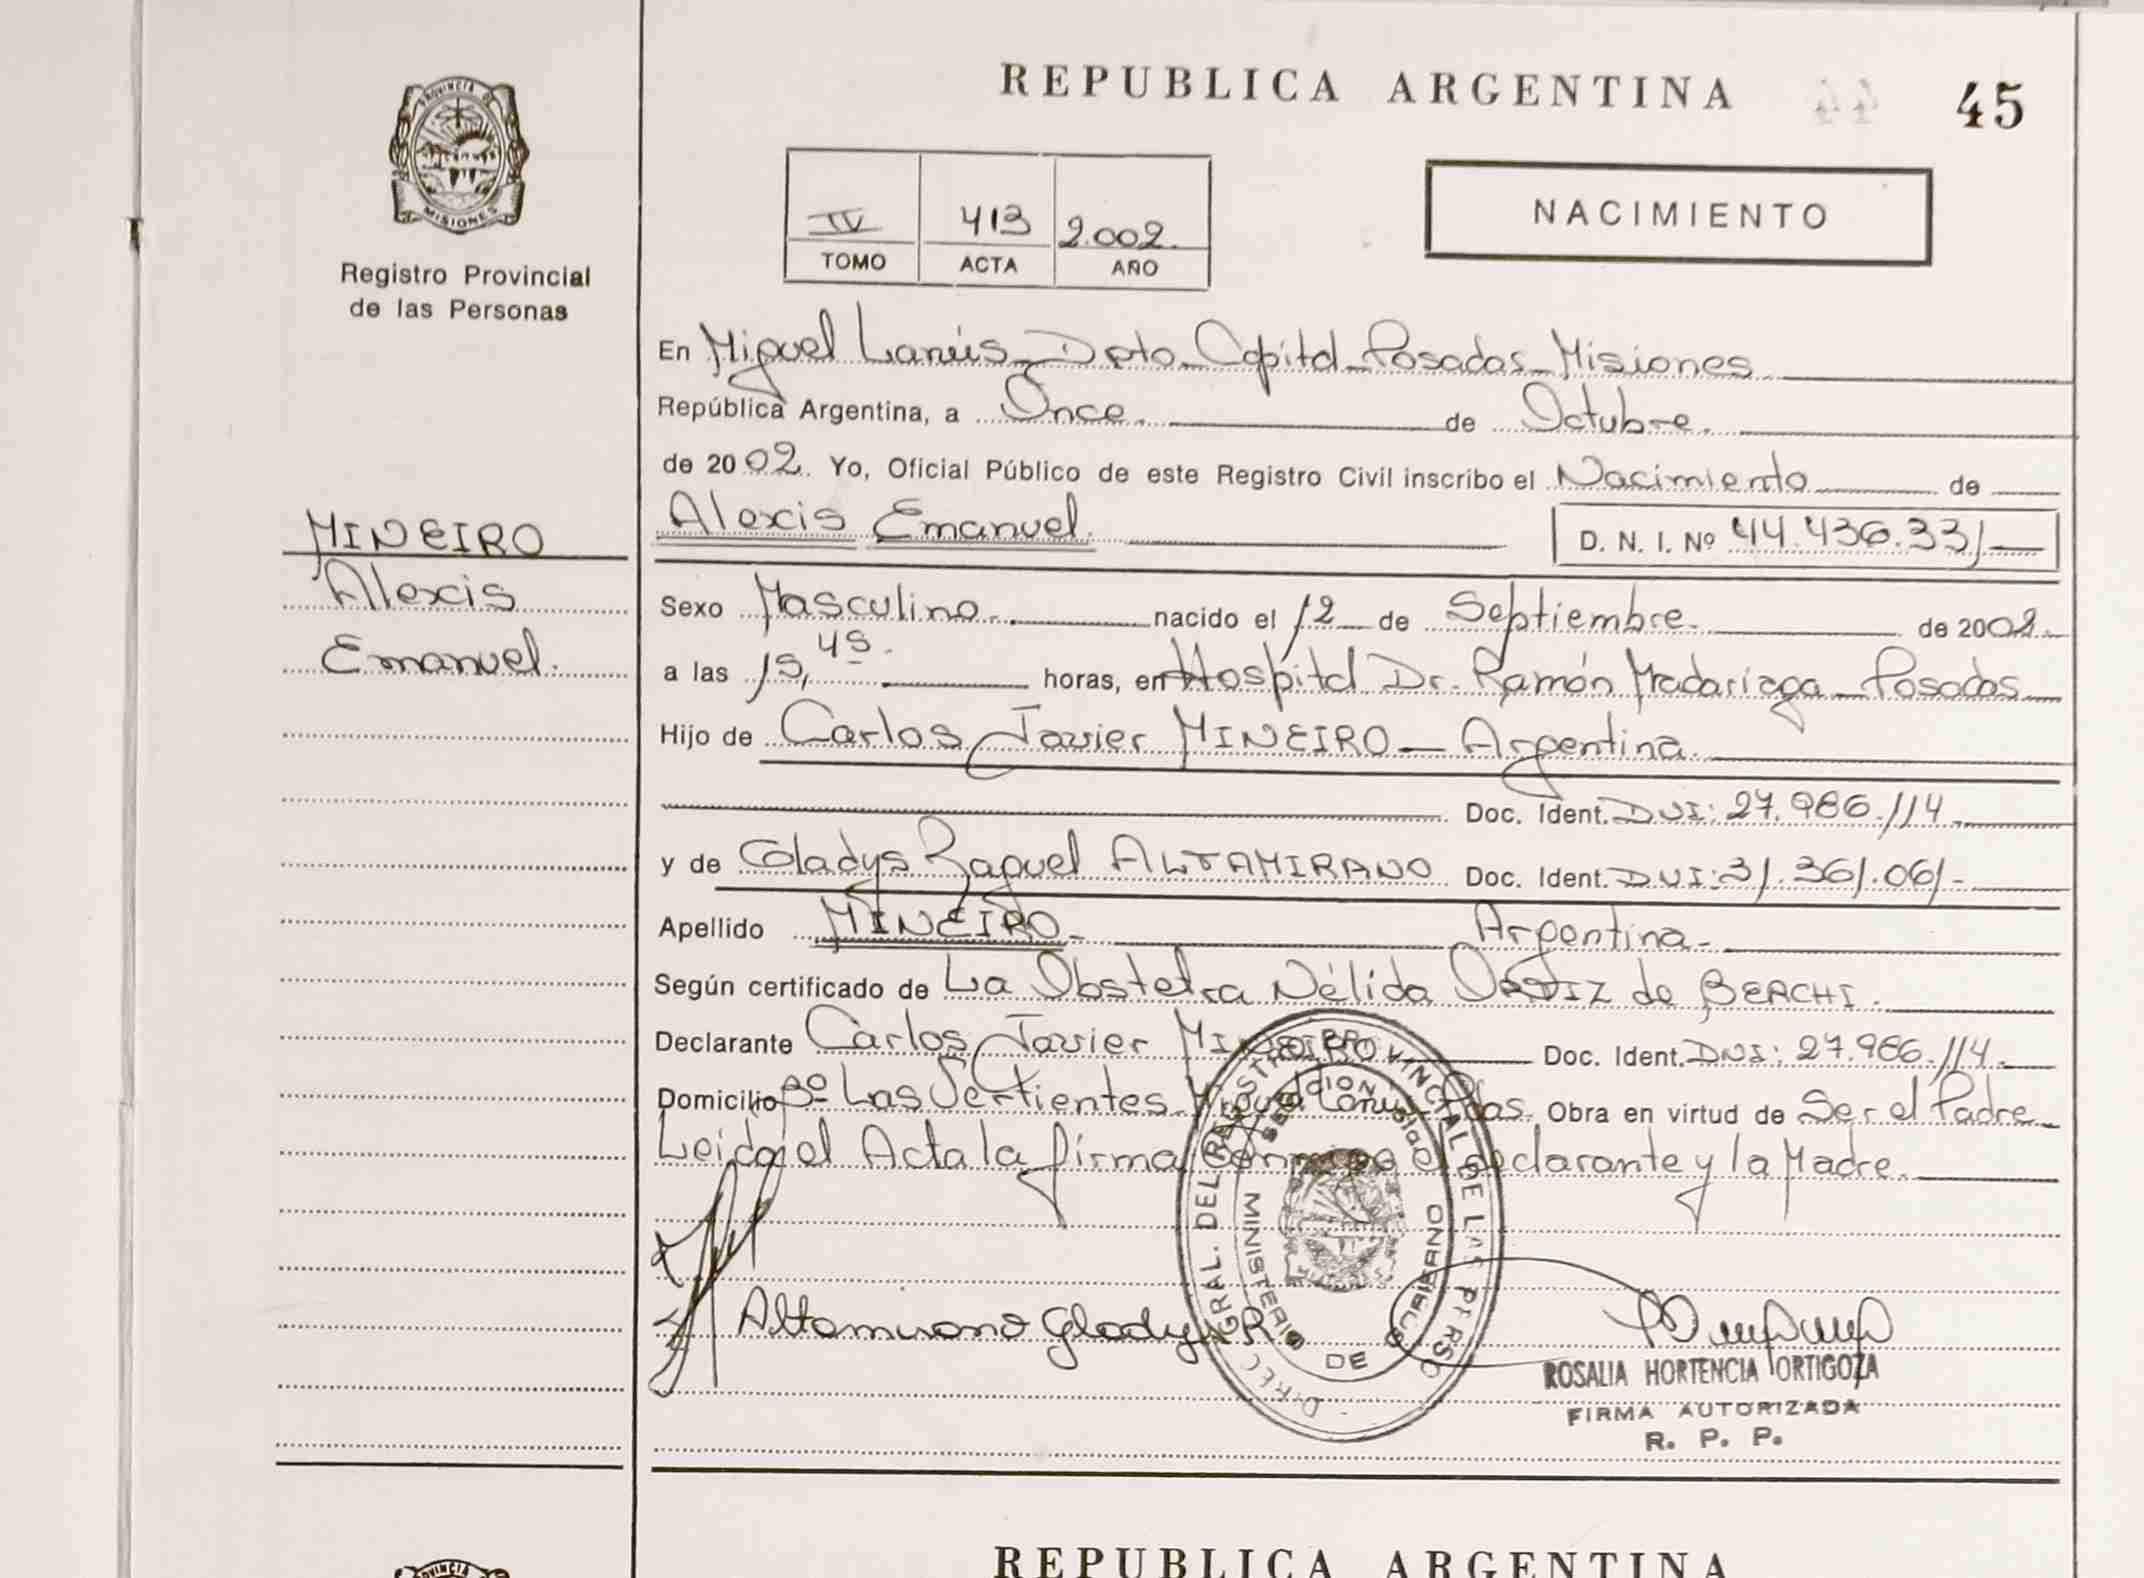 REPUBLICA ARGENTINA
45
PROVINCIA DE
MISIONES
Registro Provincial
de las Personas
IV 413 2.002.
TOMO ACTA AÑO
NACIMIENTO
En Miguel Lanús - Dpto. Capital - Posadas - Misiones
República Argentina, a Once. de Octubre.
de 2002. Yo, Oficial Público de este Registro Civil inscribo el Nacimiento de
Alexis Emanuel. D. N. I. Nº 44.436.331
MINEIRO
Alexis
Emanuel.
Sexo Masculino. nacido el 12 de Septiembre. de 2002.
a las 15,45. horas, en Hospital Dr. Ramón Madariaga - Posadas
Hijo de Carlos Javier MINEIRO - Argentina.
Doc. Ident. DNI: 27.986.114
y de Gladys Raquel ALTAMIRANO Doc. Ident. DNI: 31.361.061-
Apellido MINEIRO - Argentina -
Según certificado de La Obstetra Nélida ORTIZ de BERCHI.
Declarante Carlos Javier MINEIRO Doc. Ident. DNI: 27.986.114.
Domicilio Bº Las Vertientes Miguel Lanús - Pdas. Obra en virtud de Ser el Padre
Leida el Acta la firma conmigo el declarante y la Madre.
Altamirano Gladys R
DIREC. GRAL. DEL REGISTRO PROVINCIAL DE LAS PERSO
MINISTERIO DE GOBIERNO
ROSALIA HORTENCIA ORTIGOZA
FIRMA AUTORIZADA
R. P. P.
REPUBLICA ARGENTINA